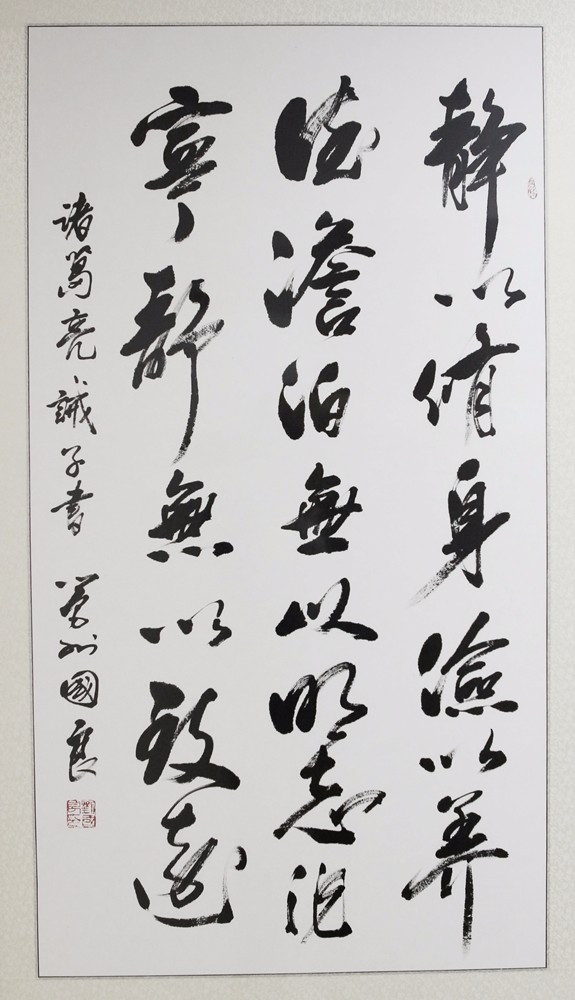 靜以脩身儉以養
德澹泊無以明志非
寧靜無以致遠
諸葛亮誡子書 州國良